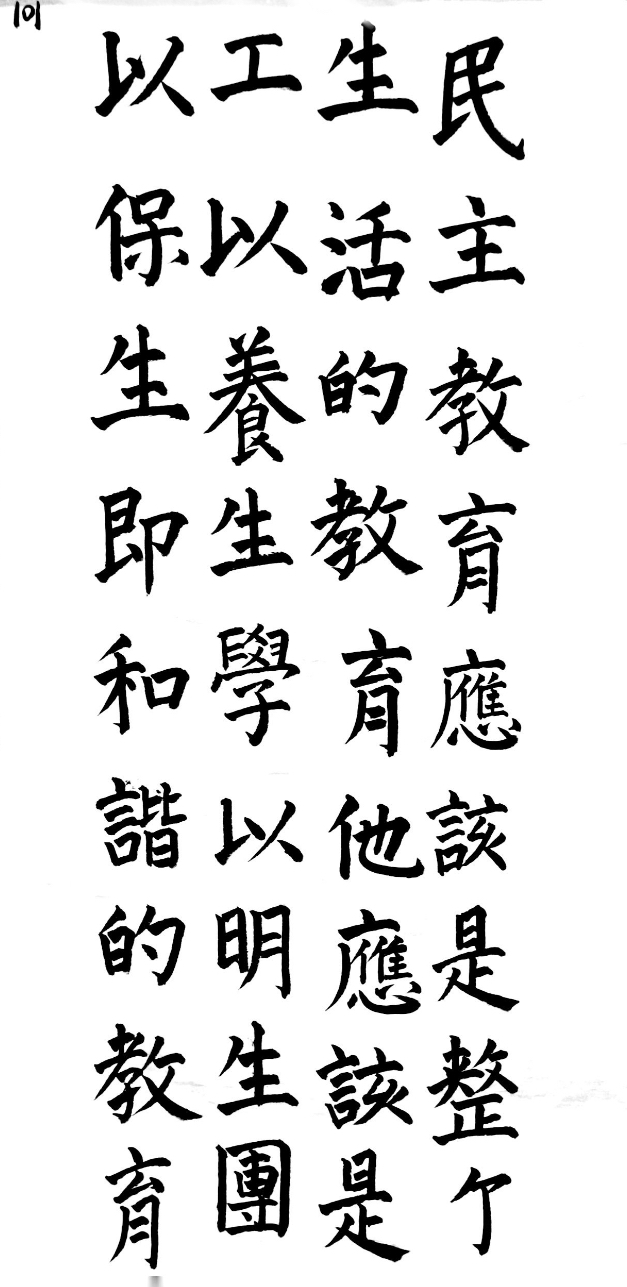 101
民主教育應該是整个
生活的教育他應該是
工以養生學以明生團
以保生即和諧的教育